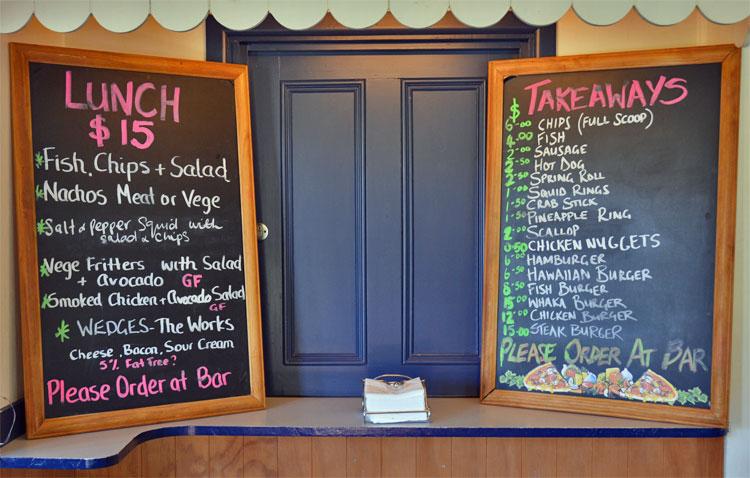 LUNCH
$15
Fish, Chips + Salad
Nachos Meat or Vege
Salt & pepper Squid with
salad & chips
Vege Fritters with Salad
+ Avocado GF
Smoked Chicken + Avocado Salad
GF
WEDGES - The Works
Cheese, Bacon, Sour Cream
5% Fat Free?
Please Order at Bar
$ TAKEAWAYS
6-00 CHIPS (FULL SCOOP)
4.00 FISH
2-00 SAUSAGE
2-50 HOT DOG
2-50 SPRING ROLL
1-00 SQUID RINGS
1-50 CRAB STICK
1-50 PINEAPPLE RING
2-00 SCALLOP
0-50 CHICKEN NUGGETS
6-00 HAMBURGER
6-50 HAWAIIAN BURGER
FISH BURGER
WHAKA BURGER
12-00 CHICKEN BURGER
15-00 STEAK BURGER
PLEASE ORDER AT BAR